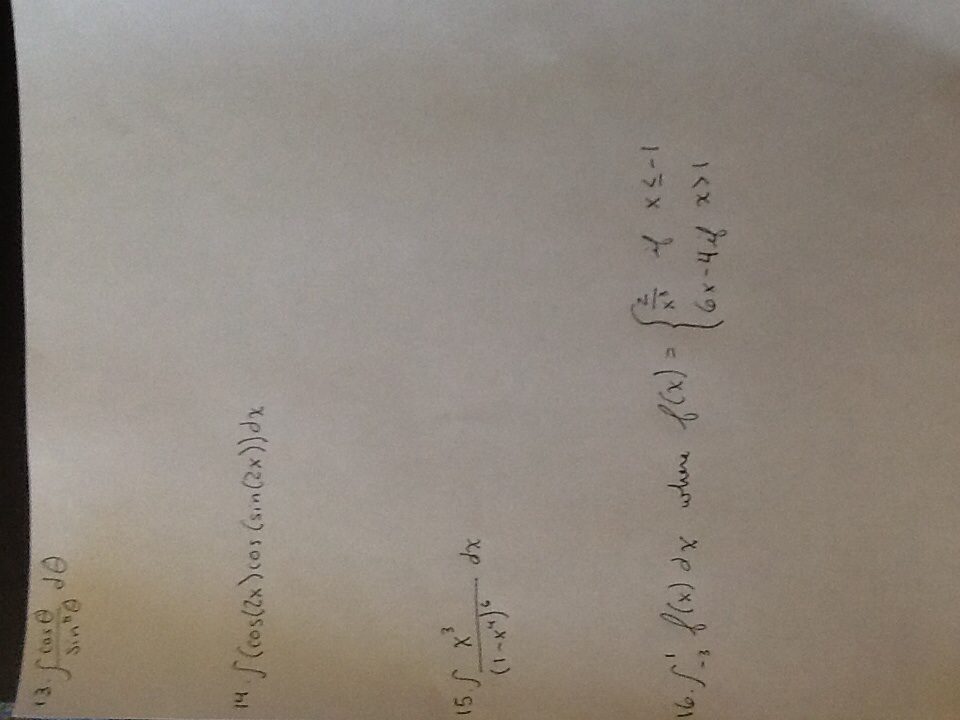 13. ∫ cosθ / sin⁴θ dθ
14. ∫(cos(2x)cos(sin(2x))dx
15. ∫ x³ / (1-x⁴)⁶ dx
16. ∫₋₃¹ f(x) dx where f(x) = { 2/x³ if x ≤ -1
6x-4 if x>1